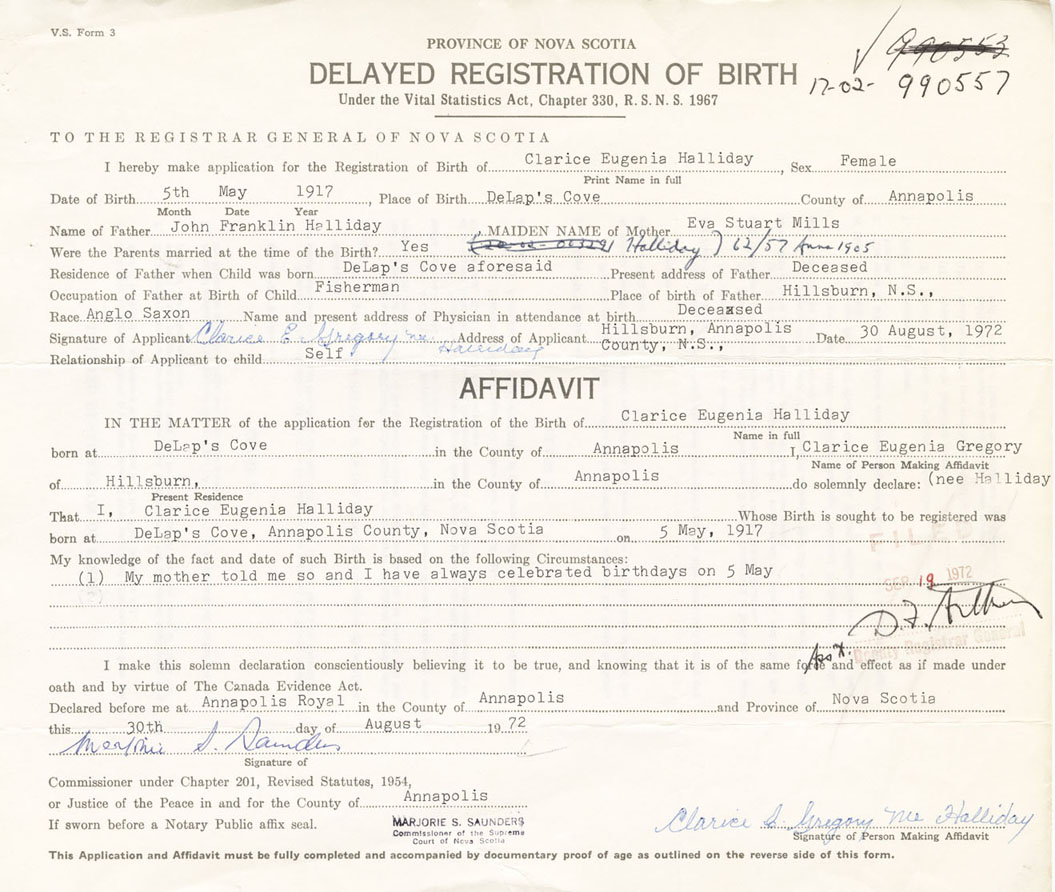 V.S. Form 3
PROVINCE OF NOVA SCOTIA
DELAYED REGISTRATION OF BIRTH
Under the Vital Statistics Act, Chapter 330, R.S.N.S. 1967
990553
17-02- 990557
TO THE REGISTRAR GENERAL OF NOVA SCOTIA
I hereby make application for the Registration of Birth of Clarice Eugenia Halliday, Sex Female
Print Name in full
Date of Birth 5th May 1917, Place of Birth DeLap's Cove County of Annapolis
Month Date Year
Name of Father John Franklin Halliday, MAIDEN NAME of Mother Eva Stuart Mills
Were the Parents married at the time of the Birth? Yes Halliday) 62/57 Anna 1905
Residence of Father when Child was born DeLap's Cove aforesaid Present address of Father Deceased
Occupation of Father at Birth of Child Fisherman Place of birth of Father Hillsburn, N.S.,
Race Anglo Saxon Name and present address of Physician in attendance at birth Deceased
Signature of Applicant Clarice E Gregory nee Halliday Address of Applicant Hillsburn, Annapolis County, N.S., Date 30 August, 1972
Relationship of Applicant to child Self
AFFIDAVIT
IN THE MATTER of the application for the Registration of the Birth of Clarice Eugenia Halliday
Name in full
born at DeLap's Cove in the County of Annapolis I, Clarice Eugenia Gregory
Name of Person Making Affidavit
of Hillsburn, in the County of Annapolis do solemnly declare: (nee Halliday
Present Residence
That I, Clarice Eugenia Halliday Whose Birth is sought to be registered was
born at DeLap's Cove, Annapolis County, Nova Scotia on 5 May, 1917
My knowledge of the fact and date of such Birth is based on the following Circumstances:
(1) My mother told me so and I have always celebrated birthdays on 5 May
FILED
SEP 19 1972
Ass't. Deputy Registrar General
I make this solemn declaration conscientiously believing it to be true, and knowing that it is of the same force and effect as if made under
oath and by virtue of The Canada Evidence Act.
Declared before me at Annapolis Royal in the County of Annapolis and Province of Nova Scotia
this 30th day of August 1972
Marjorie S. Saunders
Signature of
Commissioner under Chapter 201, Revised Statutes, 1954,
or Justice of the Peace in and for the County of Annapolis
If sworn before a Notary Public affix seal.
MARJORIE S. SAUNDERS
Commissioner of the Supreme
Court of Nova Scotia
Clarice E. Gregory nee Halliday
Signature of Person Making Affidavit
This Application and Affidavit must be fully completed and accompanied by documentary proof of age as outlined on the reverse side of this form.